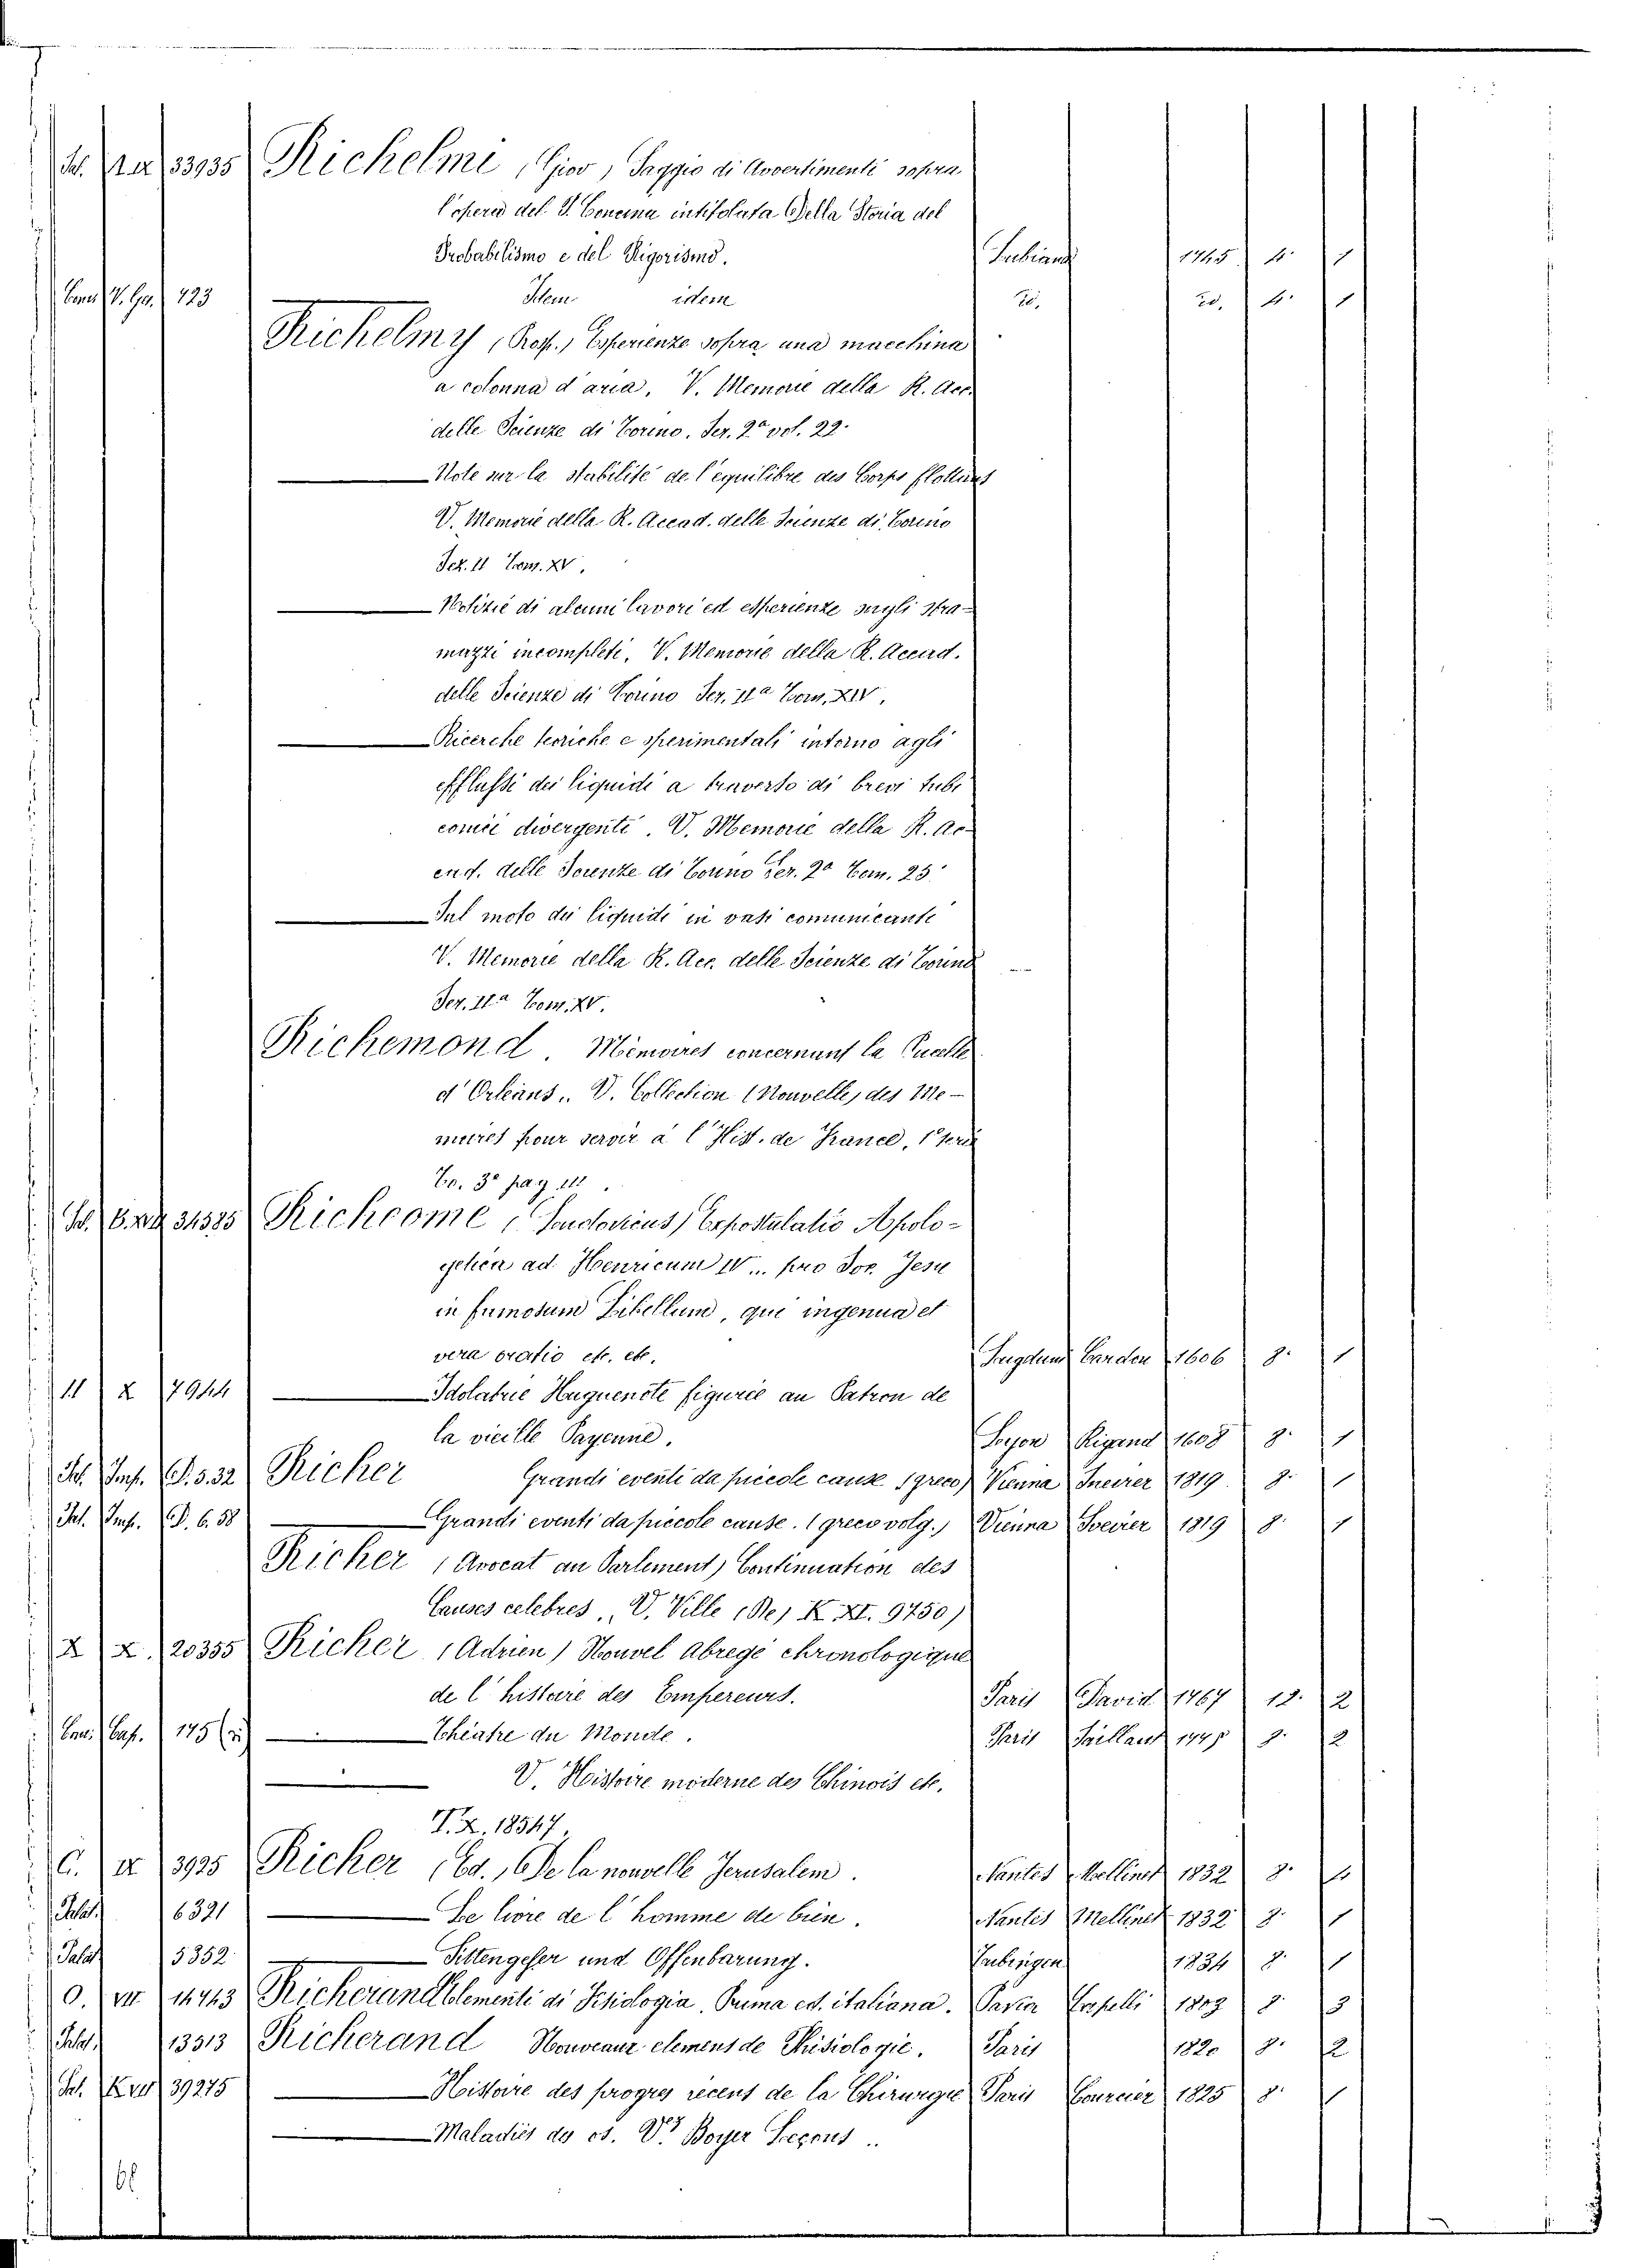 33935 Richelmi, Giov, Saggio di Avvertimenti sopra
l'opera del P. Concina intitolata Della Storia del
Probabilismo e del Rigorismo. Lubiana 1745 4. 1
V. Ga. 423 Idem idem id. id. 4. 1
Richelmy, Prof., Esperienze sopra una macchina
a colonna d'aria, V. Memorie della R. Acc.
delle Scienze di Torino. Ser. 2a vol. 22.
Note sur la stabilité de l'equilibre des Corps flottans
V. Memorie della R. Accad. delle Scienze di Torino
Ser. II Tom. XV.
Notizie di alcuni lavori ed esperienze sugli stra-
mazzi incompleti, V. Memorie della R. Accad.
delle Scienze di Torino Ser. IIa Tom. XIV.
Ricerche teoriche e sperimentali intorno agli
efflussi dei liquidi a traverso di brevi tubi
conici divergenti. V. Memorie della R. Ac-
cad. delle Scienze di Torino Ser. 2a Tom. 25.
Sul moto dei liquidi in vasi comunicanti
V. Memorie della R. Acc. delle Scienze di Torino
Ser. IIa Tom. XV.
Richemond. Mémoires concernant la Pucelle
d'Orleans. V. Collection (Nouvelle) des Me-
moires pour servir à l'Hist. de France, 1e Serie
To. 3o pag III.
34585 Richeome (Ludovicus) Expostulatio Apolo-
getica ad Henricum IV... pro Soc. Jesu
in famosum Libellum, qui ingenua et
vera oratio etc. etc. Lugduni Cardon 1606 8. 1
11 X 7944 Idolatrie Huguenote figurée au Patron de
la vieille Payenne. Lyon Rigaud 1608 8. 1
Sal. Imp. P. 5. 32 Richer Grandi eventi da piccole cause (greco) Vienna Sneirer 1819. 8. 1
Sal. Imp. P. 6. 58 Grandi eventi da piccole cause. (greco volg.) Vienna Sveirer 1819 8. 1
Richer (Avocat au Parlement) Continuation des
Causes celebres, V. Ville (De) K. XI. 9750)
X X. 20355 Richer (Adrien) Nouvel Abregé chronologique
de l'histoire des Empereurs. Paris David 1767 12. 2
Cap. 175 Théatre du Monde. Paris Saillant 1775 8. 2
V. Histoire moderne des Chinois etc.
T. X. 18547.
C. IX 3925 Richer (Ed.) De la nouvelle Jerusalem. Nantes Mellinet 1832 8. 1
Palat. 6391 Le livre de l'homme de bien. Nantes Mellinet 1832 8. 1
Palat 5352 Sittengeser und Offenbarung. Tubingen 1834 8. 1
O. VII 14743 Richerand Elementi di Fisiologia. Prima ed. italiana. Pavia Capelli 1809 8. 3
Palat. 13313 Richerand Nouveaux elemens de Phisiologie. Paris 1820 8. 2
39275 Histoire des progres recens de la Chirurgie Paris Courcier 1825 8. 1
Maladies des os. Vz Boyer Leçons..